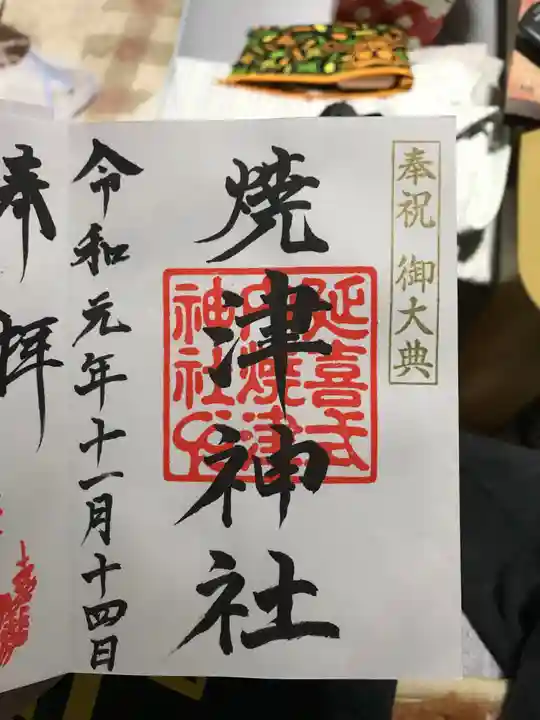 奉祝 御大典
焼津神社
延喜式
内焼津
神社之
令和元年十一月十四日
奉拝